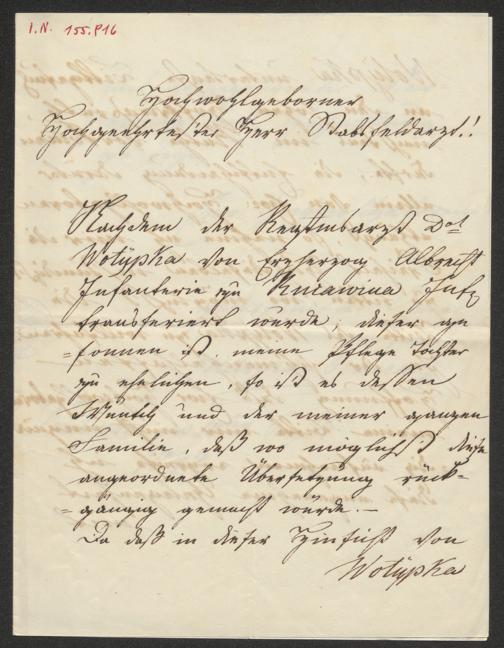 I.N. 155.816
Hochwohlgeborner
Hochgeehrtester Herr Stabsfeldarzt!!
Nachdem der Regimbsarzt Dor
Wotÿpka von Erzherzog Albrecht
Infanterie zu Kurawina Inft
transferiert wurde, dieser ge
=sonnen ist meine Pflege Tochter
zu ehelichen, so ist es dessen
Wunsch und der meiner ganzen
Familie, daß wo möglichst diese
angeordnete Übersetzung rück-
=gängig gemacht würde.–
Da daß in dieser Hinsicht von
Wotÿpka